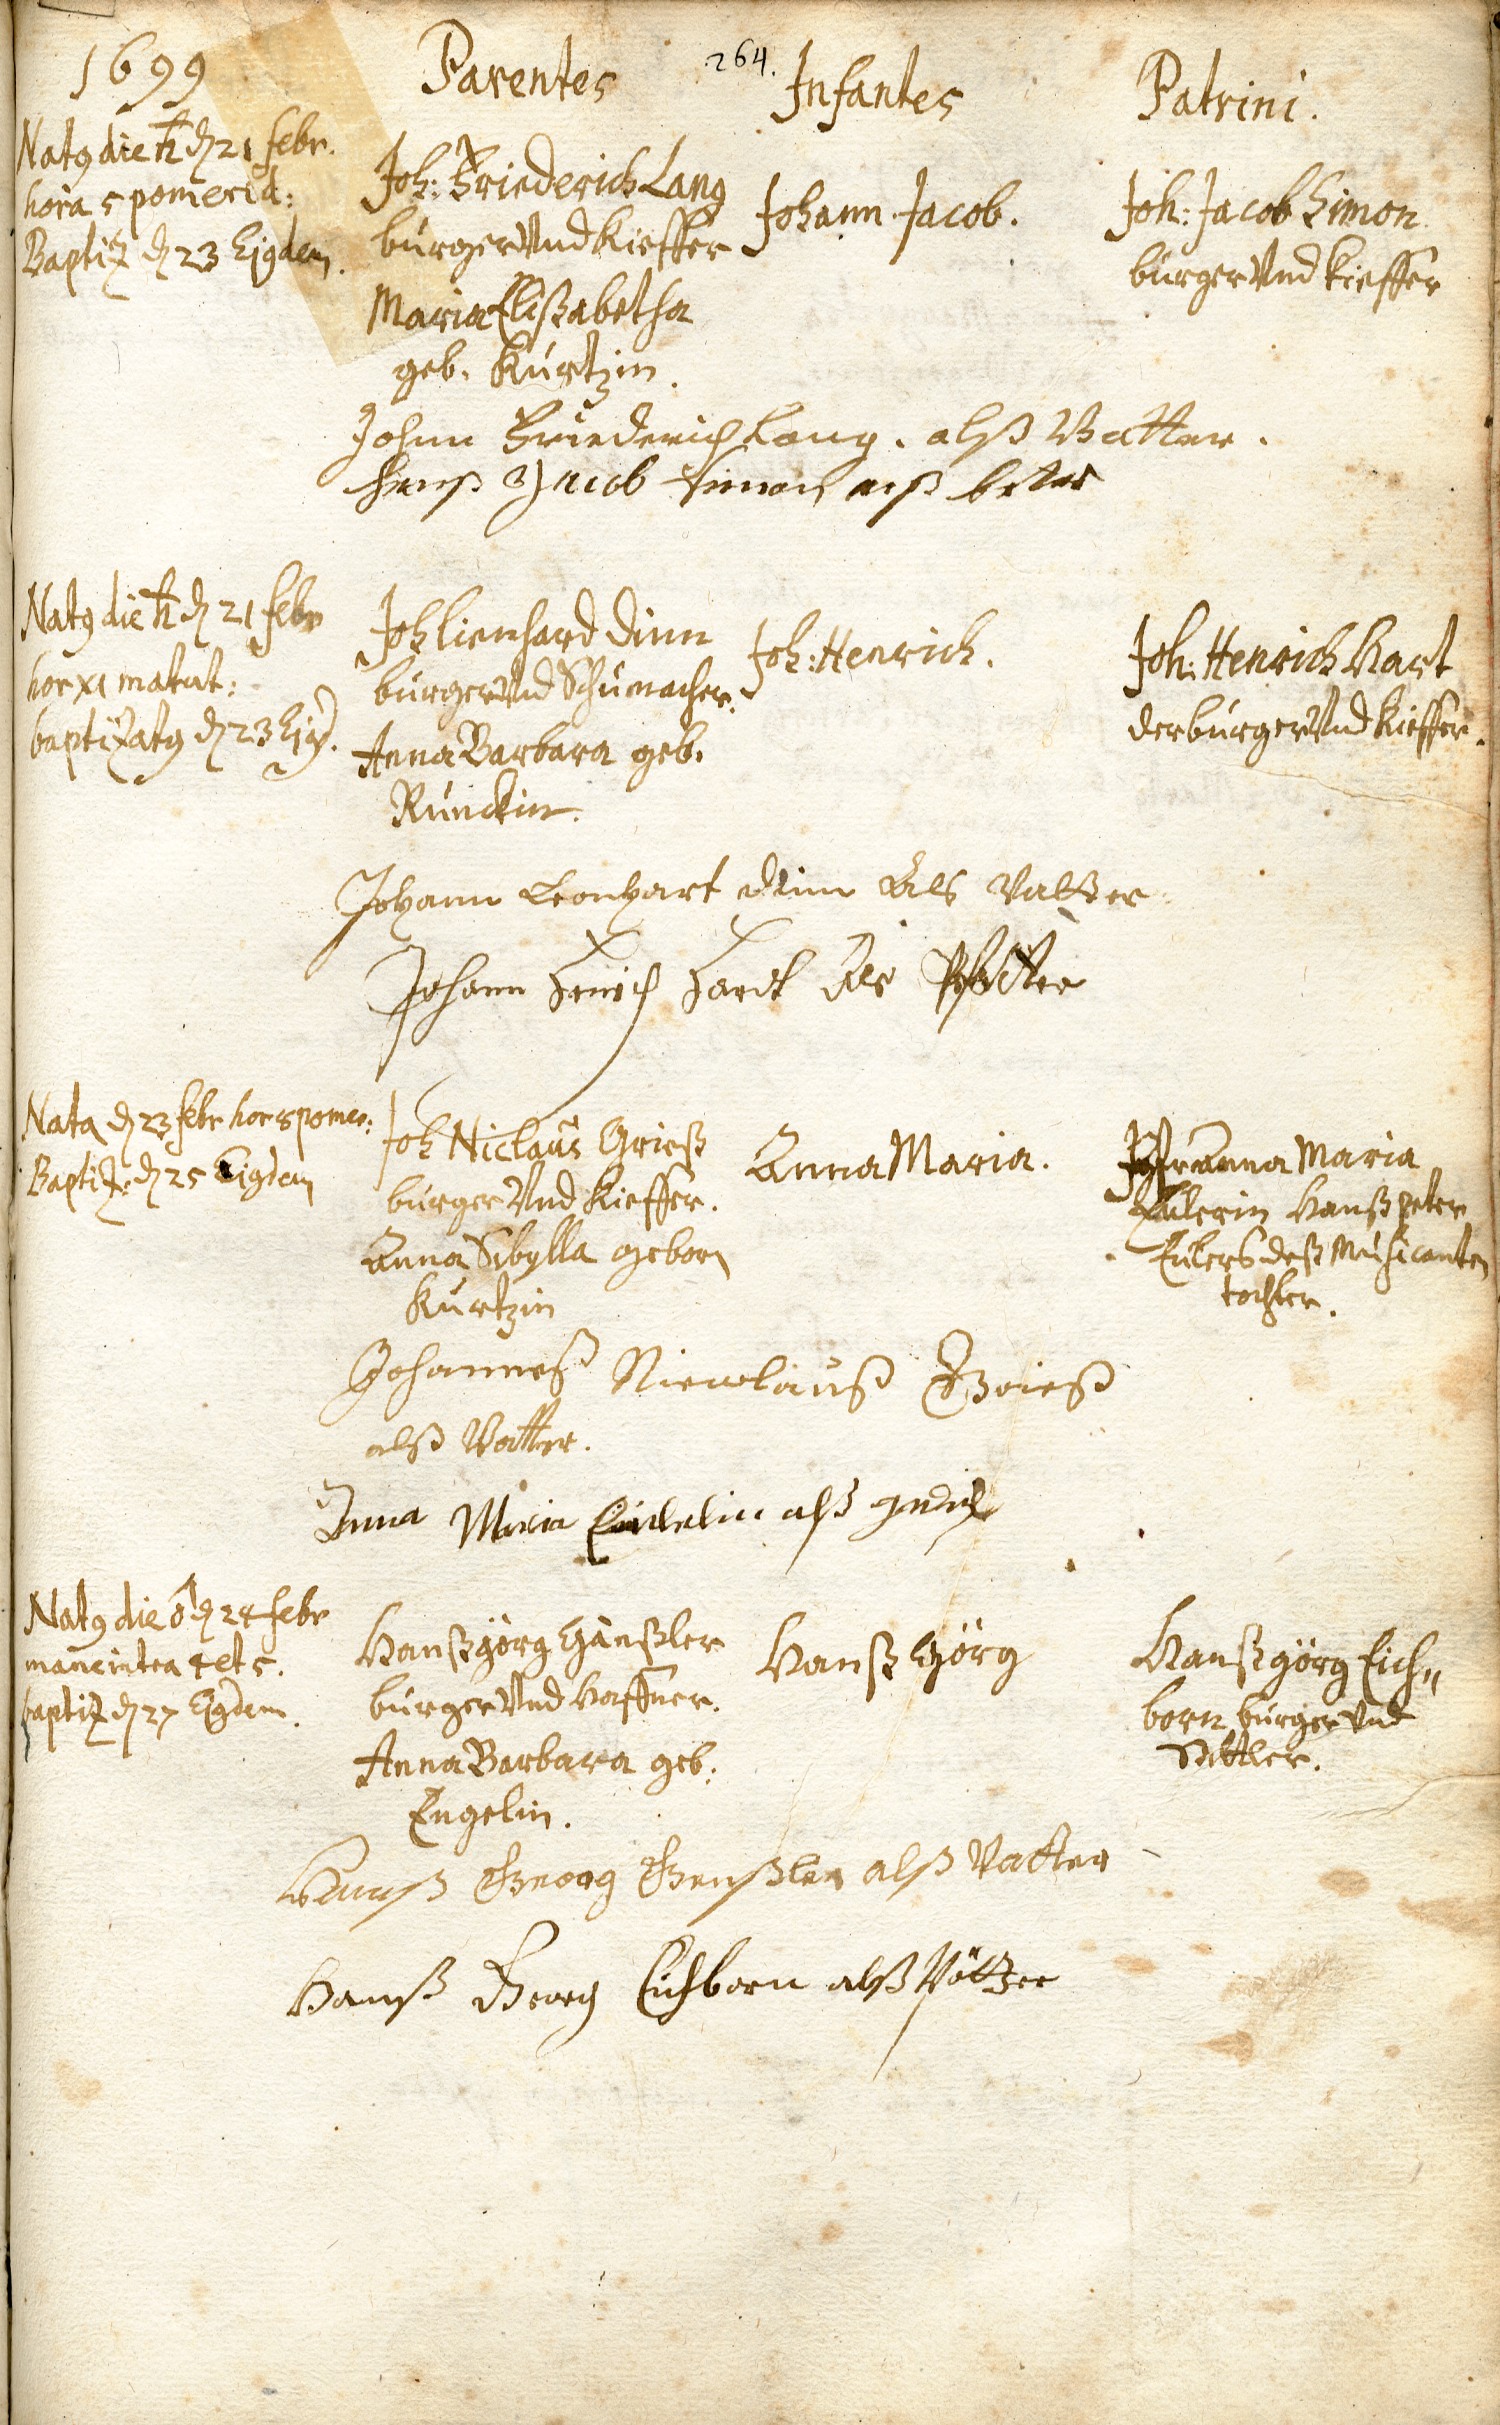 264.
1699
Parentes
Infantes
Patrini.
Natq die ♄ d 21 febr.
hora 5 pomerid:
Baptiz d 23 Ejqdem.
Joh: Friederich Lang
burger Vnd Kieffer
Maria Elisabetha
geb. Kurtzin.
Johann Jacob.
Joh: Jacob Simon
burger Vnd kieffer
Johan Friederich Lang. alß Vatter.
Hanß Jacob Simon alß
Natq die ♄ d 21 febr
hor XI matut:
baptizatq d 23 Ejqd.
Joh lienhard Dinn
burger Vnd Schumacher.
Anna Barbara geb.
Runckin.
Joh: Henrich.
Joh: Henrich Hart
der burger Vnd Kieffer.
Johann Leonhart Dinn Als Vatter
Johann Henrich Hardt Als Pfetter
Nata d 23 febr hor 5 pomer:
Baptiz: d 25 Ejqdem
Joh Niclaus Grieß
burger Vnd Kieffer.
Anna Sibylla geborn
Kurtzin
Anna Maria.
Jfr Anna Maria
Eulerin Hanß peter
Eulers deß Musicanten
tochter.
Johanneß Nicolauß Grieß
alß Vatter.
Anna Maria alß
Natq die ♂ d 24 febr
mane intra 4 et 5.
baptiz d 27 Ejqdem.
Hanßgörg Gänßler
burger Vnd Haffner.
Anna Barbara geb:
Engelin.
Hanß Görg
Hanßgörg Eich„
born burger Vnd
Sattler.
Hanß Georg Genßler alß Vatter
Hanß Georg Eichborn alß Pöttter